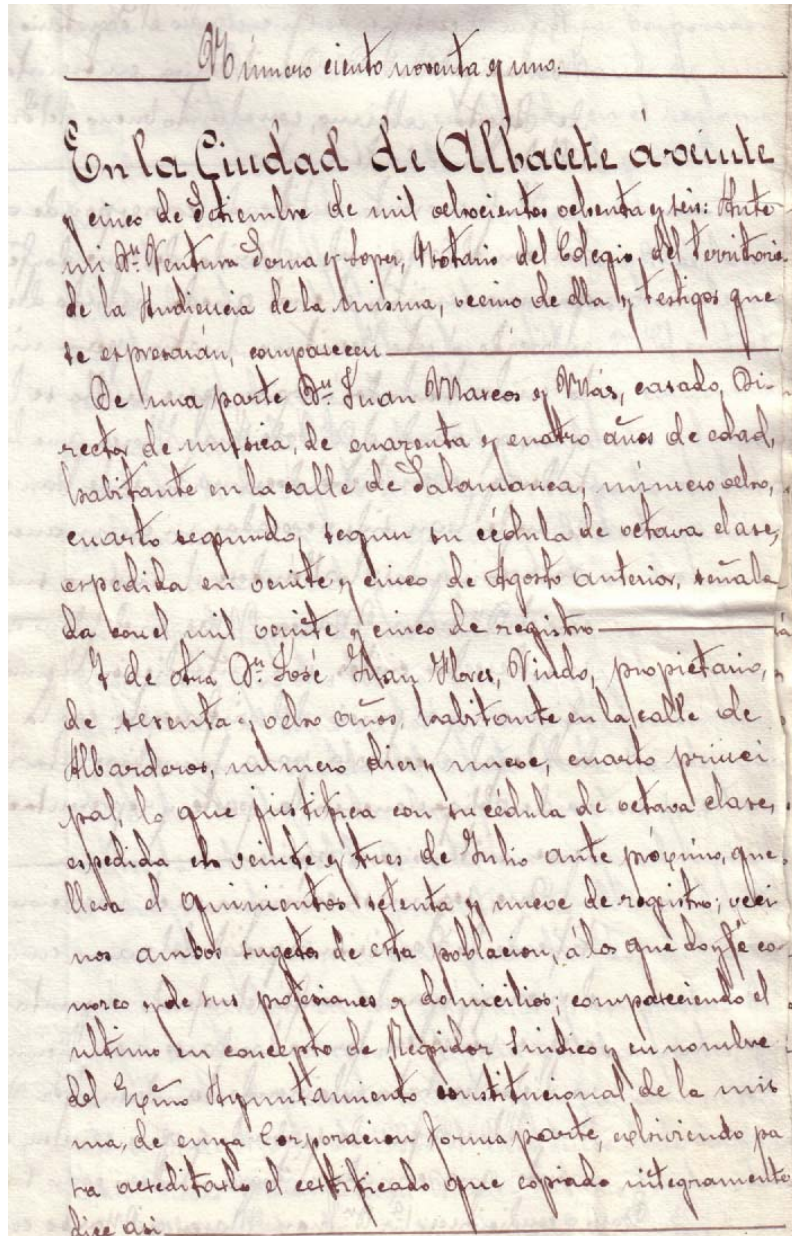 Número ciento noventa y uno.
En la Ciudad de Albacete á veinte
y cinco de Setiembre de mil ochocientos ochenta y seis: Ante
mi Dn. Ventura Serna y Lopez, Notario del Colegio, del territorio
de la Audiencia de la misma, vecino de ella y testigos que
se espresarán, comparecen
De una parte Dn. Juan Marcos y Más, casado, Di-
rector de música, de cuarenta y cuatro años de edad,
habitante en la calle de Salamanca, número ocho,
cuarto segundo, segun su cédula de octava clase,
espedida en veinte y cinco de Agosto anterior, señala-
da con el mil veinte y cinco de registro
Y de otra Dn. José Juan Flores, Viudo, propietario,
de sesenta y ocho años, habitante en la calle de
Albarderos, número diez y nueve, cuarto princi
pal, lo que justifica con su cédula de octava clase,
espedida en veinte y tres de Julio ante próximo, que
lleva el quinientos setenta y nueve de registro; veci
nos ambos sugetos de esta poblacion, á los que doy fé co-
nozco y de sus profesiones y domicilios; compareciendo el
ultimo en concepto de Regidor Sindico y en nombre
del Excmo Ayuntamiento constitucional de la mis
ma, de cuya Corporacion forma parte, exhiviendo pa
ra acreditarlo el certificado que copiado integramente
dice asi